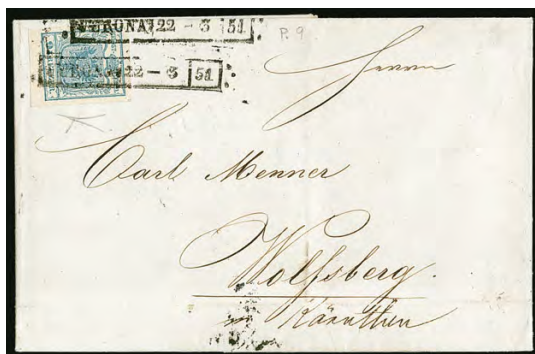 VERONA 22 - 3 51
P. 9
VERONA 22 - 3 51
Herrn
Carl Menner
Wolfsberg.
Kärnthen